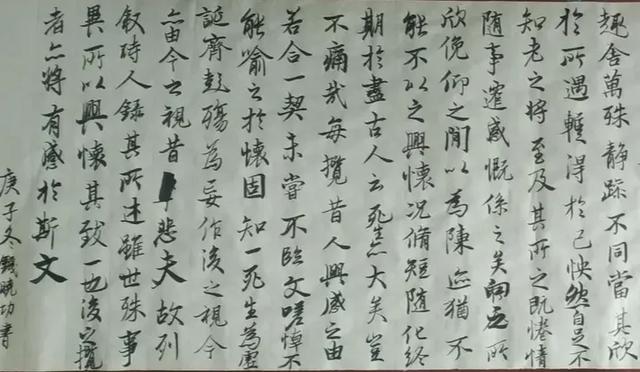 趣舍萬殊静躁不同當其欣
於所遇暫得於己怏然自足不
知老之將至及其所之既惓情
随事遷感慨係之矣向之所
欣俛仰之閒以為陳迹猶不
能不以之興懷况脩短随化終
期於盡古人云死生亦大矣豈
不痛哉每攬昔人興感之由
若合一契未嘗不臨文嗟悼不
能喻之於懷固知一死生為虛
誕齊彭殤為妄作後之視今
亦由今之視昔悲夫故列
叙時人録其所述雖世殊事
異所以興懷其致一也後之攬
者亦將有感於斯文
庚子冬錢曉功書